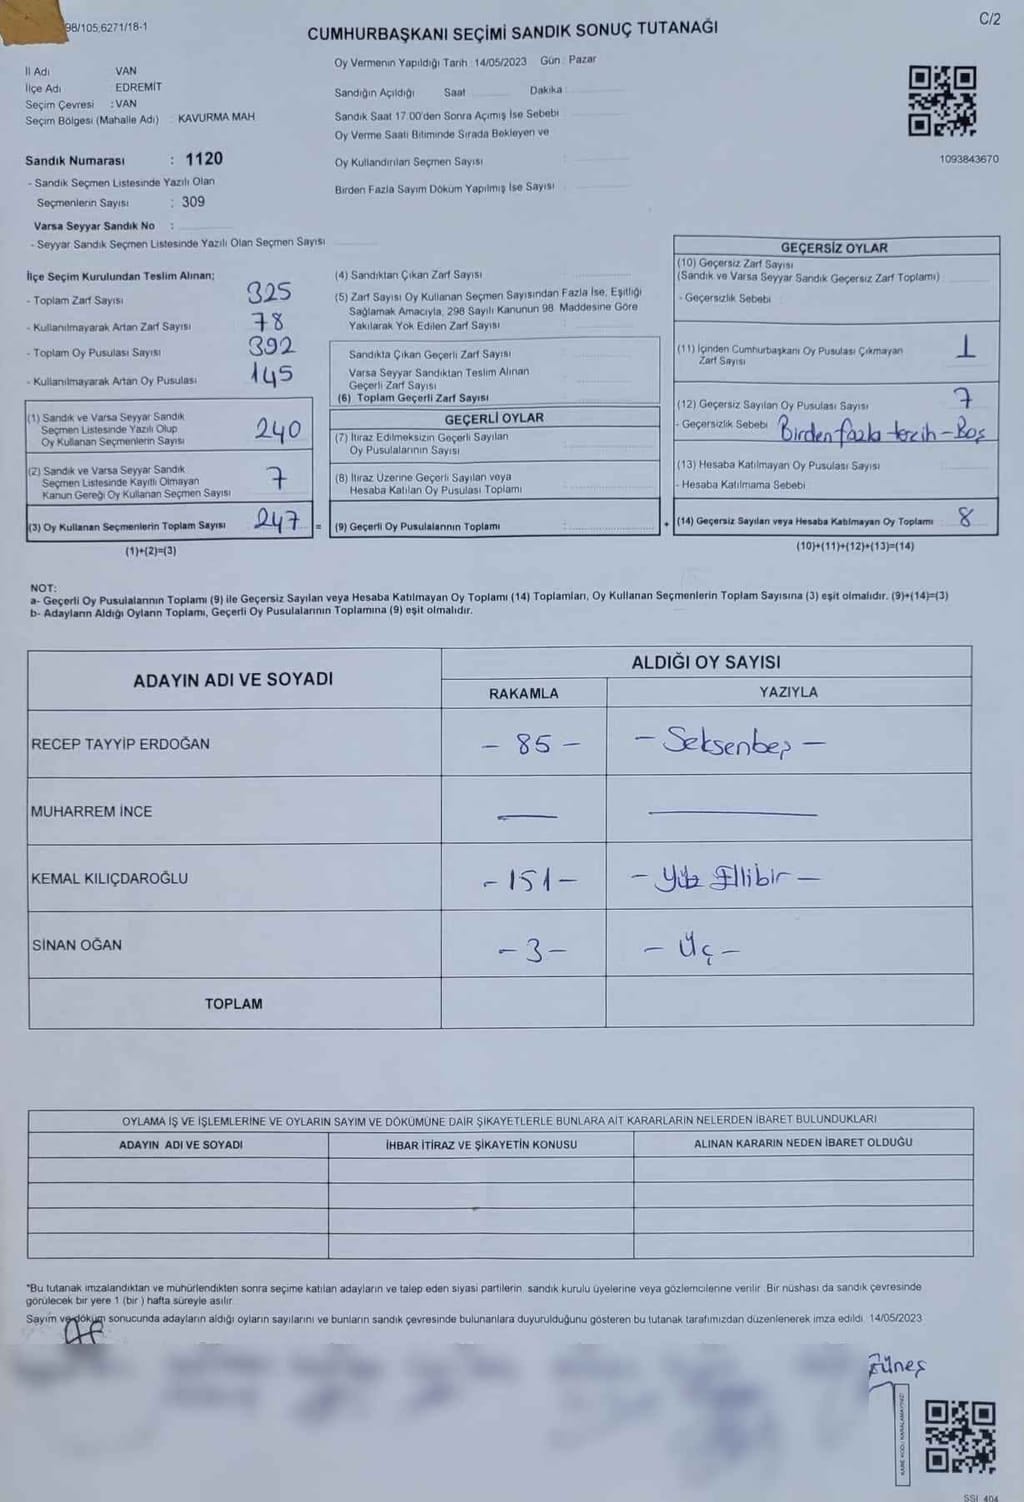 98/105,6271/18-1
C/2
CUMHURBAŞKANI SEÇİMİ SANDIK SONUÇ TUTANAĞI
İl Adı VAN
İlçe Adı EDREMİT
Seçim Çevresi : VAN
Seçim Bölgesi (Mahalle Adı) : KAVURMA MAH
Sandık Numarası : 1120
- Sandık Seçmen Listesinde Yazılı Olan
Seçmenlerin Sayısı : 309
Varsa Seyyar Sandık No :
- Seyyar Sandık Seçmen Listesinde Yazılı Olan Seçmen Sayısı
Oy Vermenin Yapıldığı Tarih : 14/05/2023 Gün : Pazar
Sandığın Açıldığı Saat Dakika :
Sandık Saat 17.00'den Sonra Açımış İse Sebebi
Oy Verme Saati Bitiminde Sırada Bekleyen ve
Oy Kullandırılan Seçmen Sayısı :
Birden Fazla Sayım Döküm Yapılmış İse Sayısı :
1093843670
İlçe Seçim Kurulundan Teslim Alınan;
- Toplam Zarf Sayısı 325
- Kullanılmayarak Artan Zarf Sayısı 78
- Toplam Oy Pusulası Sayısı 392
- Kullanılmayarak Artan Oy Pusulası 145
(1) Sandık ve Varsa Seyyar Sandık
Seçmen Listesinde Yazılı Olup
Oy Kullanan Seçmenlerin Sayısı 240
(2) Sandık ve Varsa Seyyar Sandık
Seçmen Listesinde Kayıtlı Olmayan
Kanun Gereği Oy Kullanan Seçmen Sayısı 7
(3) Oy Kullanan Seçmenlerin Toplam Sayısı 247 =
(1)+(2)=(3)
(4) Sandıktan Çıkan Zarf Sayısı :
(5) Zarf Sayısı Oy Kullanan Seçmen Sayısından Fazla İse, Eşitliği
Sağlamak Amacıyla, 298 Sayılı Kanunun 98. Maddesine Göre
Yakılarak Yok Edilen Zarf Sayısı :
Sandıkta Çıkan Geçerli Zarf Sayısı
Varsa Seyyar Sandıktan Teslim Alınan
Geçerli Zarf Sayısı
(6) Toplam Geçerli Zarf Sayısı
GEÇERLİ OYLAR
(7) İtiraz Edilmeksizin Geçerli Sayılan
Oy Pusulalarının Sayısı :
(8) İtiraz Üzerine Geçerli Sayılan veya
Hesaba Katılan Oy Pusulası Toplamı :
(9) Geçerli Oy Pusulalarının Toplamı : +
GEÇERSİZ OYLAR
(10) Geçersiz Zarf Sayısı
(Sandık ve Varsa Seyyar Sandık Geçersiz Zarf Toplamı)
- Geçersizlik Sebebi
(11) İçinden Cumhurbaşkanı Oy Pusulası Çıkmayan
Zarf Sayısı 1
(12) Geçersiz Sayılan Oy Pusulası Sayısı 7
- Geçersizlik Sebebi Birden fazla tercih - Boş
(13) Hesaba Katılmayan Oy Pusulası Sayısı
- Hesaba Katılmama Sebebi
(14) Geçersiz Sayılan veya Hesaba Katılmayan Oy Toplamı 8
(10)+(11)+(12)+(13)=(14)
NOT:
a- Geçerli Oy Pusulalarının Toplamı (9) ile Geçersiz Sayılan veya Hesaba Katılmayan Oy Toplamı (14) Toplamları, Oy Kullanan Seçmenlerin Toplam Sayısına (3) eşit olmalıdır. (9)+(14)=(3)
b- Adayların Aldığı Oyların Toplamı, Geçerli Oy Pusulalarının Toplamına (9) eşit olmalıdır.
ADAYIN ADI VE SOYADI
ALDIĞI OY SAYISI
RAKAMLA YAZIYLA
RECEP TAYYİP ERDOĞAN - 85 - - Seksenbeş -
MUHARREM İNCE — —
KEMAL KILIÇDAROĞLU - 151 - - Yüz Ellibir -
SİNAN OĞAN - 3 - - Üç -
TOPLAM
OYLAMA İŞ VE İŞLEMLERİNE VE OYLARIN SAYIM VE DÖKÜMÜNE DAİR ŞİKAYETLERLE BUNLARA AİT KARARLARIN NELERDEN İBARET BULUNDUKLARI
ADAYIN ADI VE SOYADI İHBAR İTİRAZ VE ŞİKAYETİN KONUSU ALINAN KARARIN NEDEN İBARET OLDUĞU
*Bu tutanak imzalandıktan ve mühürlendikten sonra seçime katılan adayların ve talep eden siyasi partilerin sandık kurulu üyelerine veya gözlemcilerine verilir. Bir nüshası da sandık çevresinde
görülecek bir yere 1 (bir) hafta süreyle asılır.
Sayım ve döküm sonucunda adayların aldığı oyların sayılarını ve bunların sandık çevresinde bulunanlara duyurulduğunu gösteren bu tutanak tarafımızdan düzenlenerek imza edildi. 14/05/2023
KARE KODU KARALAMAYINIZ!
SSI 404